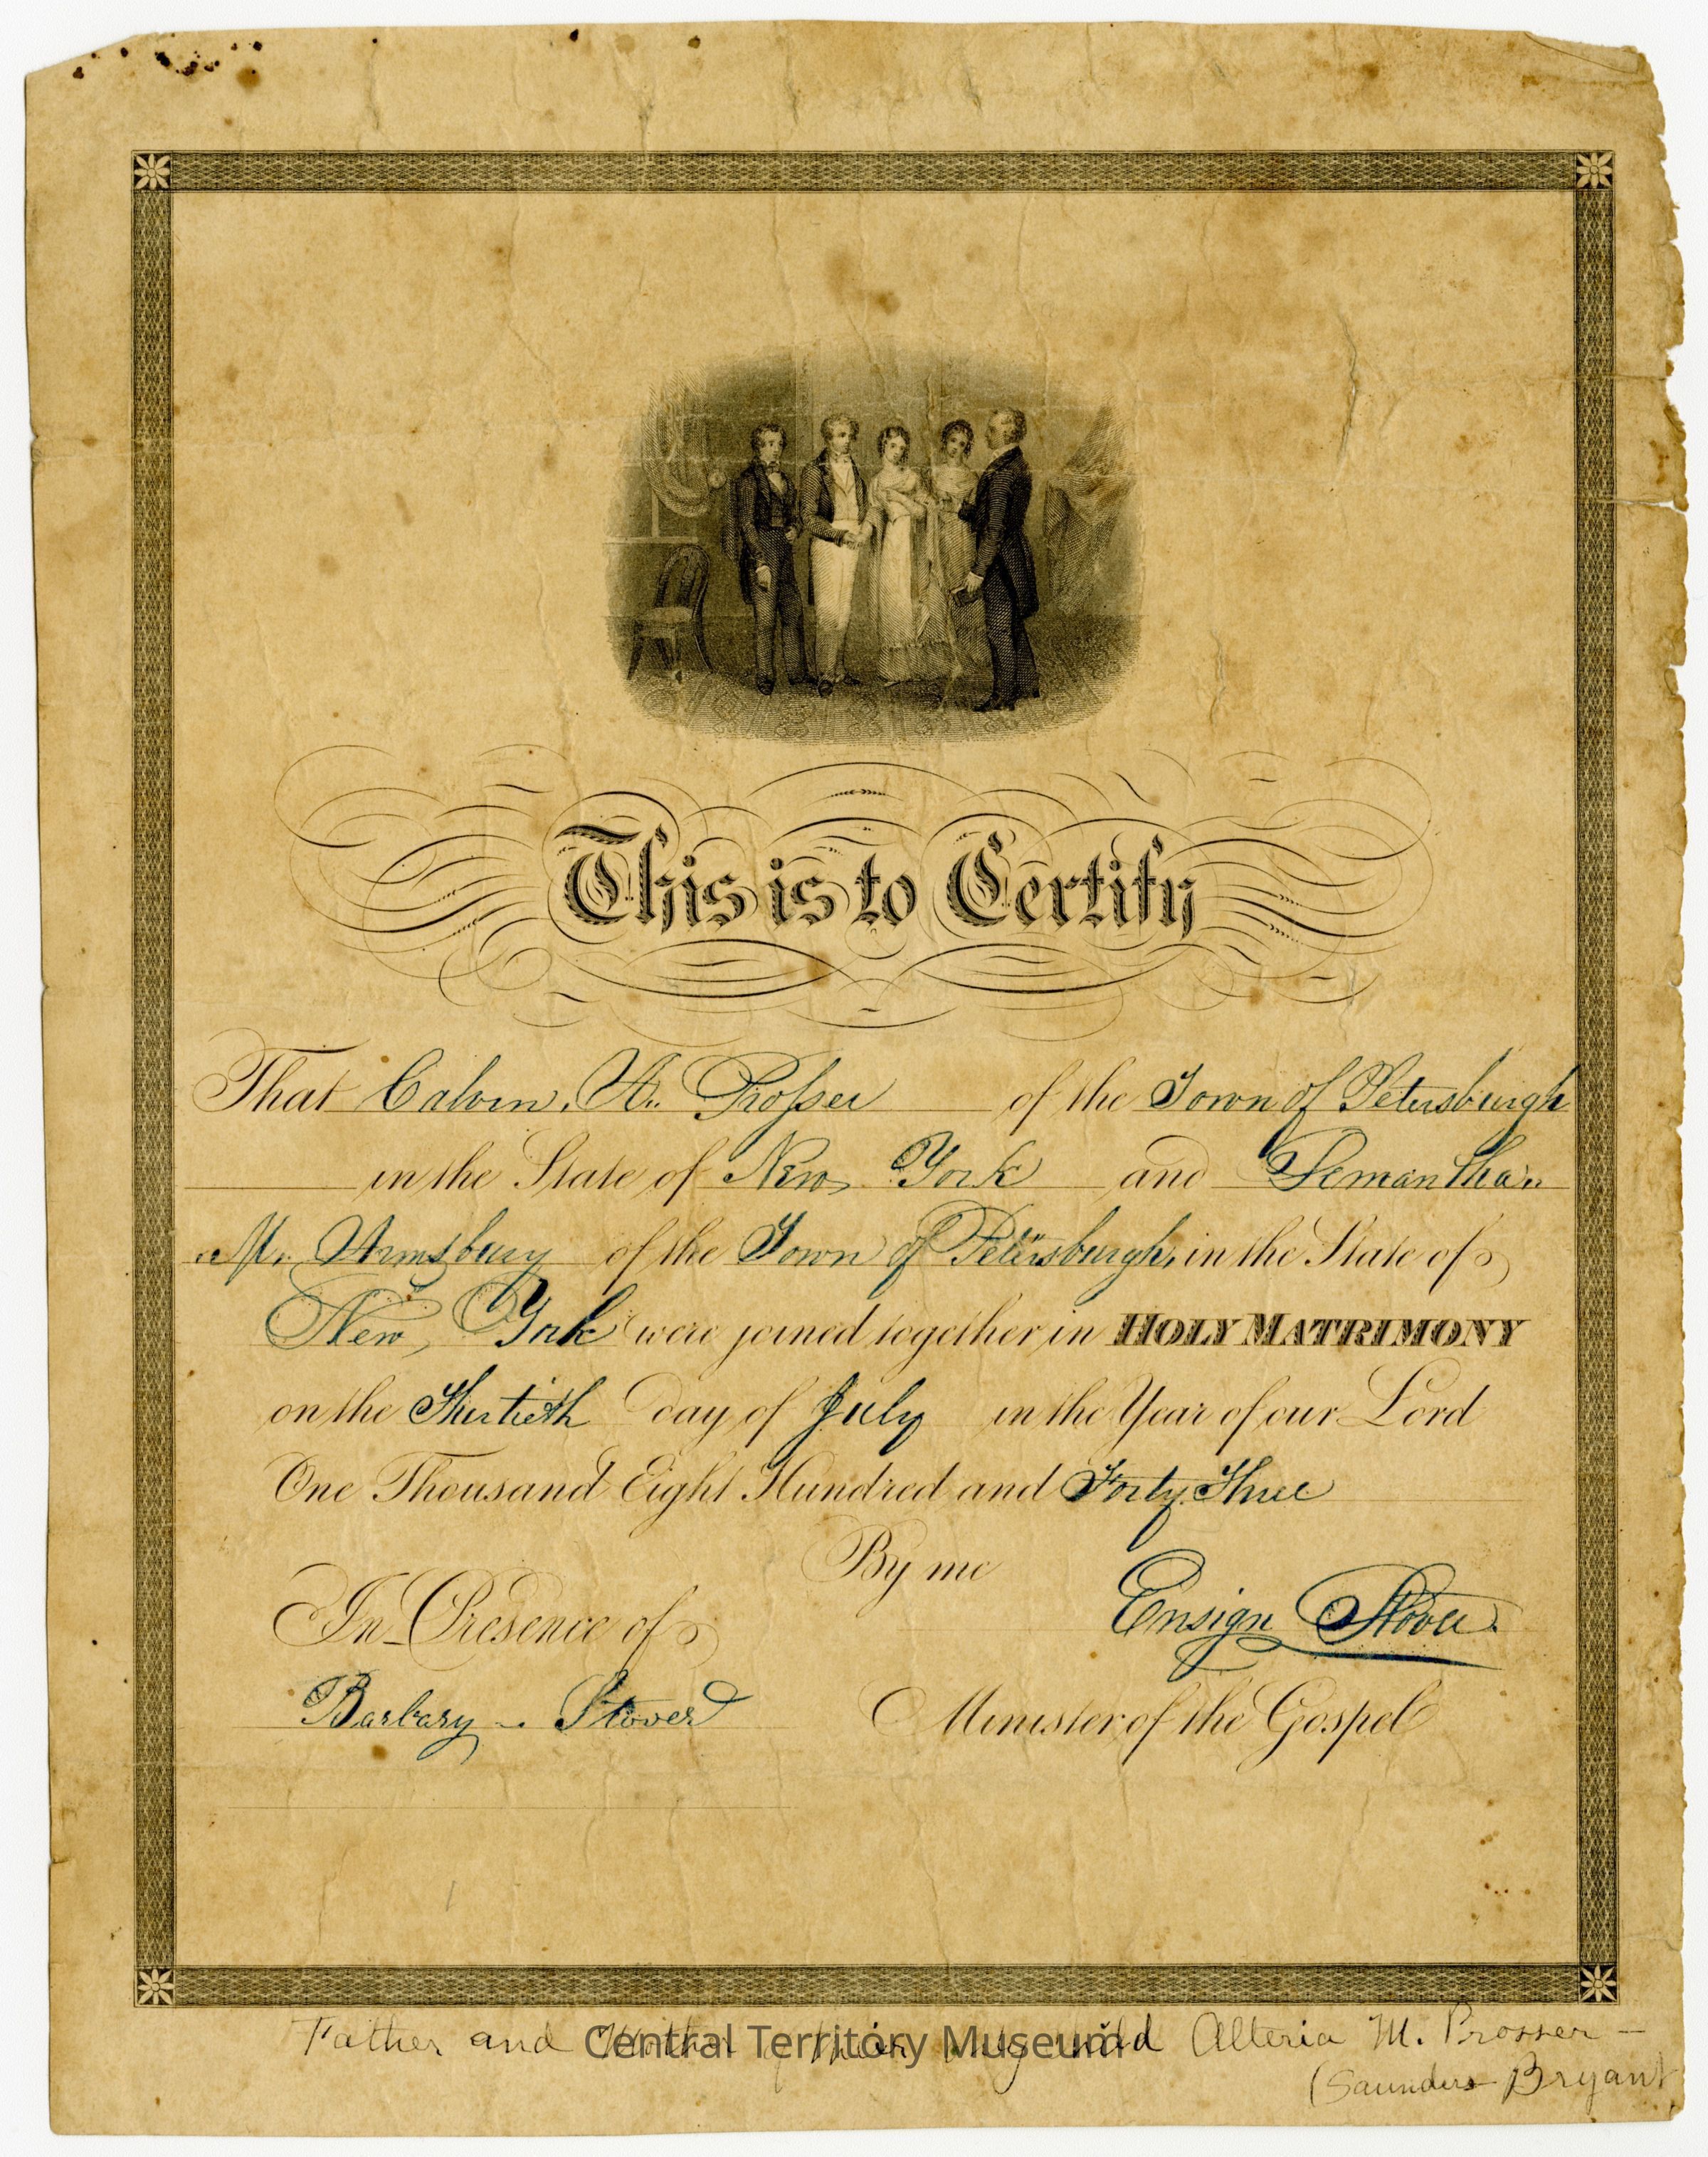 This is to Certify
That Calvin. A. Prosser of the Town of Petersburgh
in the State of New York and Semantha
M. Armsbury of the Town of Petersburgh, in the State of
New, York were joined together in HOLY MATRIMONY
on the Thirtieth day of July in the Year of our Lord
One Thousand Eight Hundred and Forty Three
By me
In Presence of
Ensign Stover.
Barbary Stover
Minister of the Gospel
Father and Mother of their only child Alteria M. Prosser -
Central Territory Museum
(Saunders Bryant